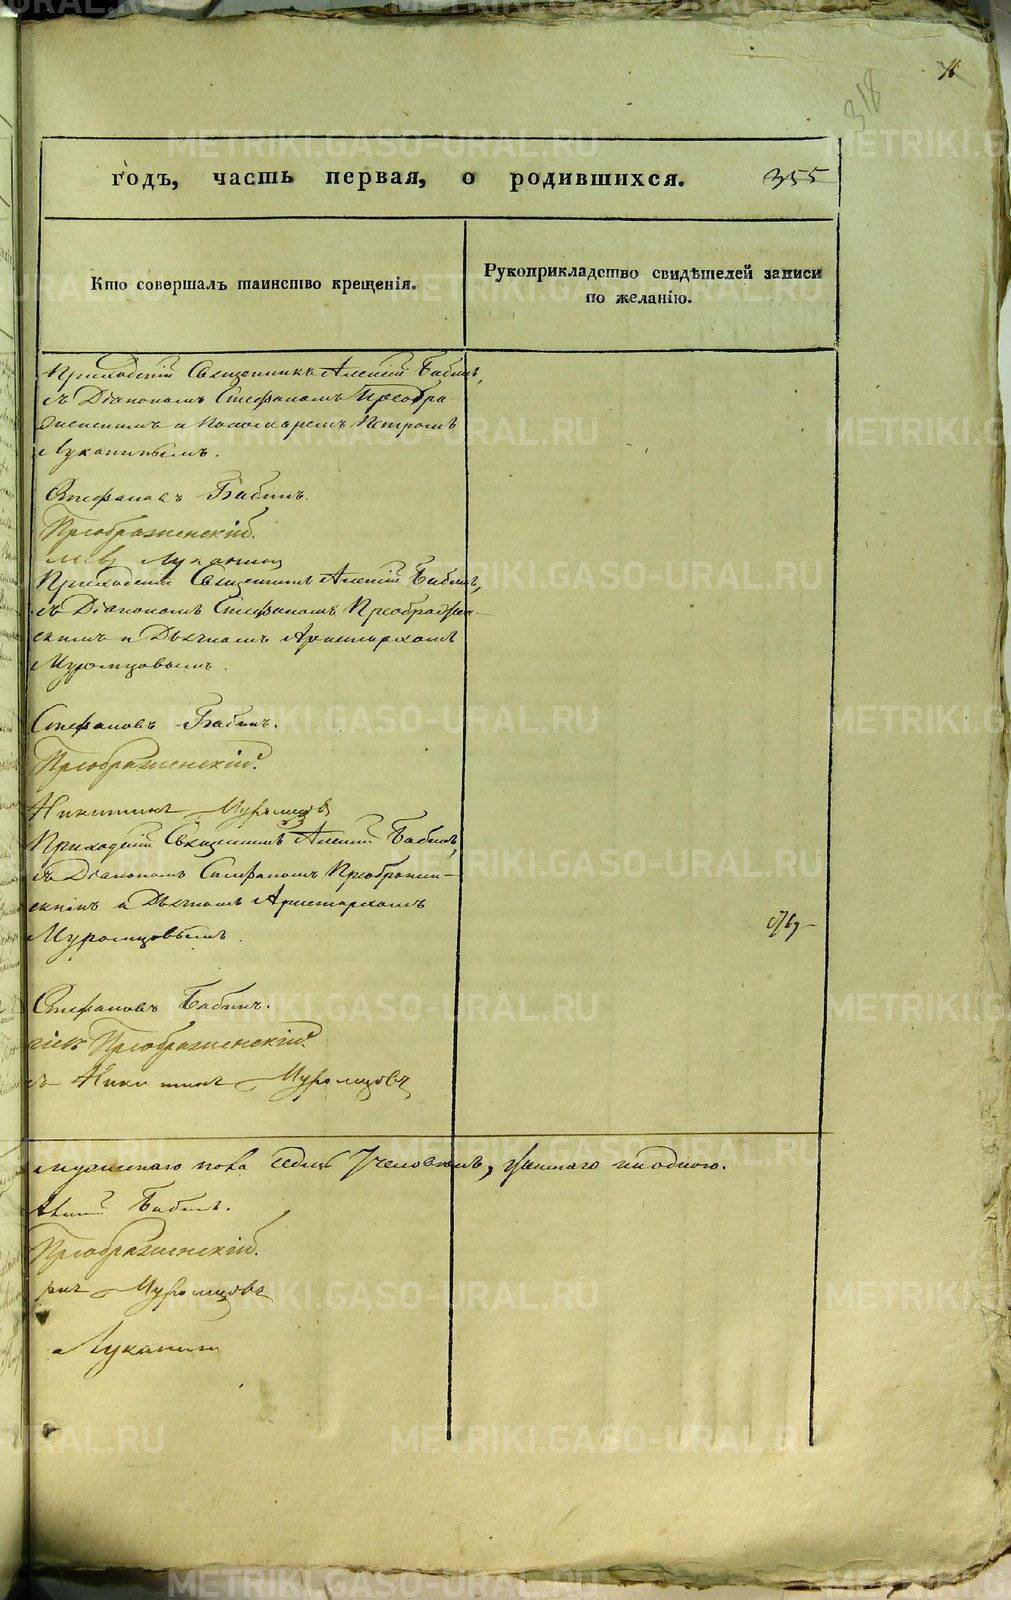 318
годъ, часть первая, о родившихся. 355
Кто совершалъ таинство крещенія.
Рукоприкладство свидѣтелей записи
по желанію.
Приходскій Священникъ Алексій Бабинъ,
съ Діакономъ Стефаномъ Преобра
женскимъ и Пономаремъ Петромъ
Луканинымъ.
Стефановъ Бабинъ.
Преображенскій.
Луканин
Приходскій Священникъ Алексій Бабинъ,
съ Діакономъ Стефаномъ Преображен-
скимъ и Дьячкомъ Аристархомъ
Муромцовымъ.
Стефановъ Бабинъ.
Преображенскій.
Никитинъ Муромцовъ
Приходскій Священникъ Алексій Бабинъ,
съ Діакономъ Стефаномъ Преображен-
скимъ и Дьячкомъ Аристархомъ
Муромцовымъ.
Стефановъ Бабинъ.
Преображенскій.
Никитинъ Муромцовъ
мужескаго пола седмь 7 человѣкъ, женскаго ни одного.
Бабинъ.
Преображенскій.
Муромцовъ
Луканин
METRIKI.GASO-URAL.RU